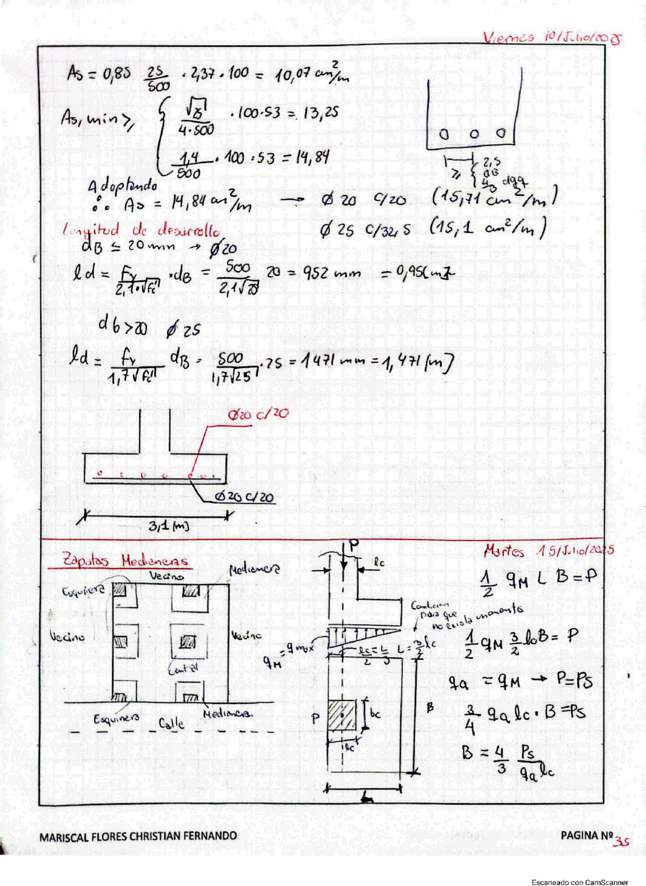 Viernes 18/Julio/2025
As = 0,85 25/500 · 2,37 · 100 = 10,07 cm²/m
As,min ≥ { √25/4·500 · 100·53 = 13,25
1,4/500 · 100 · 53 = 14,84
≥ { 2,5
dB
4/3 dag
Adoptando
∴ As = 14,84 cm²/m → ϕ 20 c/20 (15,71 cm²/m)
ϕ 25 c/32,5 (15,1 cm²/m)
Longitud de desarrollo
dB ≤ 20mm → ϕ20
ld = Fy/2,1·√fc' · dB = 500/2,1√25 20 = 952 mm = 0,95[m]
db>20 ϕ 25
ld = fy/1,7√fc' dB = 500/1,7√25 · 25 = 1471 mm = 1,471 [m]
ϕ20 c/20
ϕ20 c/20
3,1 [m]
Zapatas Medianeras
Martes 15/Julio/2025
Vecino
Medianera
Esquinera
Vecino
Vecino
Central
Esquinera
Medianera
Calle
P
lc
qM = qmax
lc/2 = L/3 L = 3/2 lc
Condicion para que no exista momento
P
bc
lc
B
L
1/2 qM L B = P
1/2 qM 3/2 lc B = P
qa = qM → P=Ps
3/4 qa lc · B = Ps
B = 4/3 Ps/qa lc
MARISCAL FLORES CHRISTIAN FERNANDO
PAGINA Nº 35
Escaneado con CamScanner